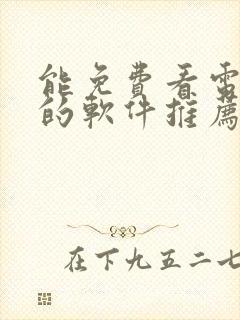 能免費看電
的軟件推薦
在下九五二七